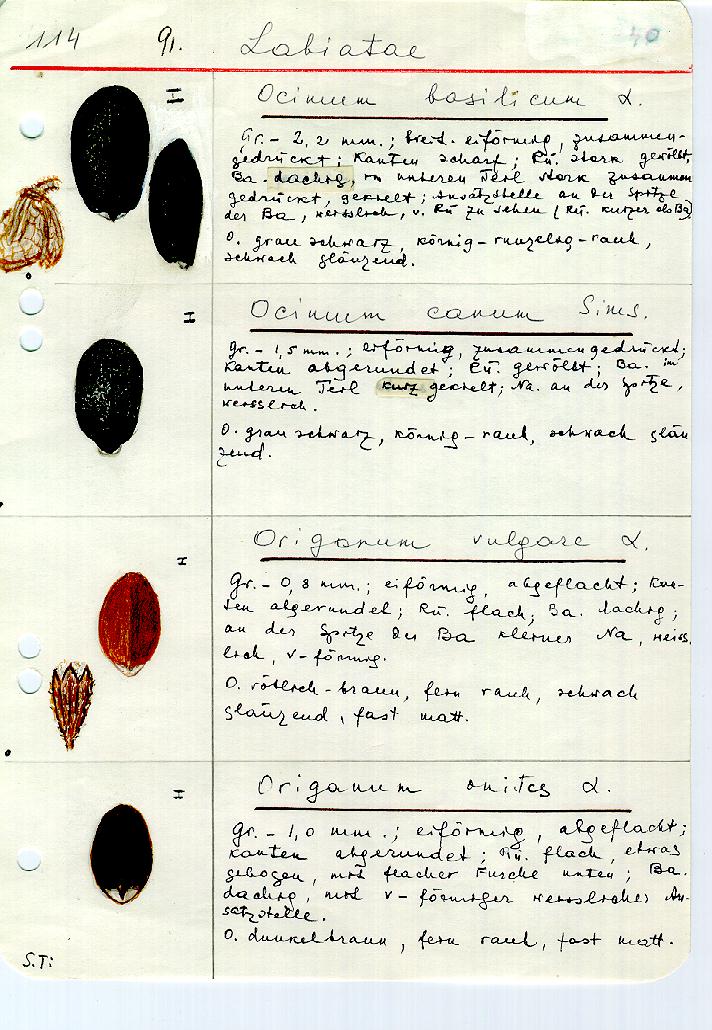 114 91. Labiatae 40
Ocimum basilicum L.
Gr. - 2,2 mm.; breit. eiförmig, zusammen-
gedrückt; Kanten scharf; Rü. stark gewölbt,
Ba. dachrg, im unteren Teil stark zusammen
gedrückt, gekielt; Ansatzstelle an der Spitze
der Ba, weisslich, v. Rü zu sehen (Rü. kürzer als Ba)
O. grau schwarz, körnig-runzelig-rauh,
schwach glänzend.
Ocimum canum Sims.
Gr. - 1,5 mm.; eiförmig, zusammengedrückt;
Kanten abgerundet; Rü. gewölbt; Ba. im
unteren Teil kurz gekielt; Na. an der Spitze,
weisslich.
O. grau schwarz, körnig-rauh, schwach glän
zend.
Origanum vulgare L.
Gr. - 0,8 mm.; eiförmig, abgeflacht; Kan-
ten abgerundet; Rü. flach; Ba. dachrg;
an der Spitze der Ba kleines Na, weiss
lich, v-förmig.
O. rötlich-braun, fein rauh, schwach
glänzend, fast matt.
Origanum onites L.
Gr. - 1,0 mm.; eiförmig, abgeflacht;
Kanten abgerundet; Rü. flach, etwas
gebogen, mit flacher Furche unten; Ba.
dachrg, mit v-förmiger weisslicher An-
satzstelle.
O. dunkelbraun, fein rauh, fast matt.
S.Ti